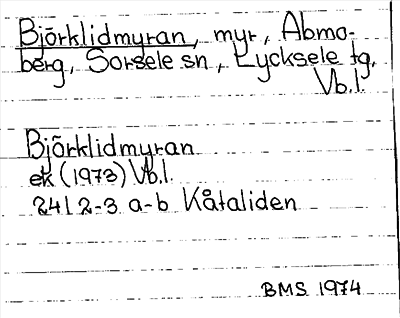 Björklidmyran, myr, Abmo-
berg, Sorsele sn, Lycksele tg,
Vb.l.
Björklidmyran
ek (1973) Vb.l.
24I 2-3 a-b Kåtaliden
BMS 1974